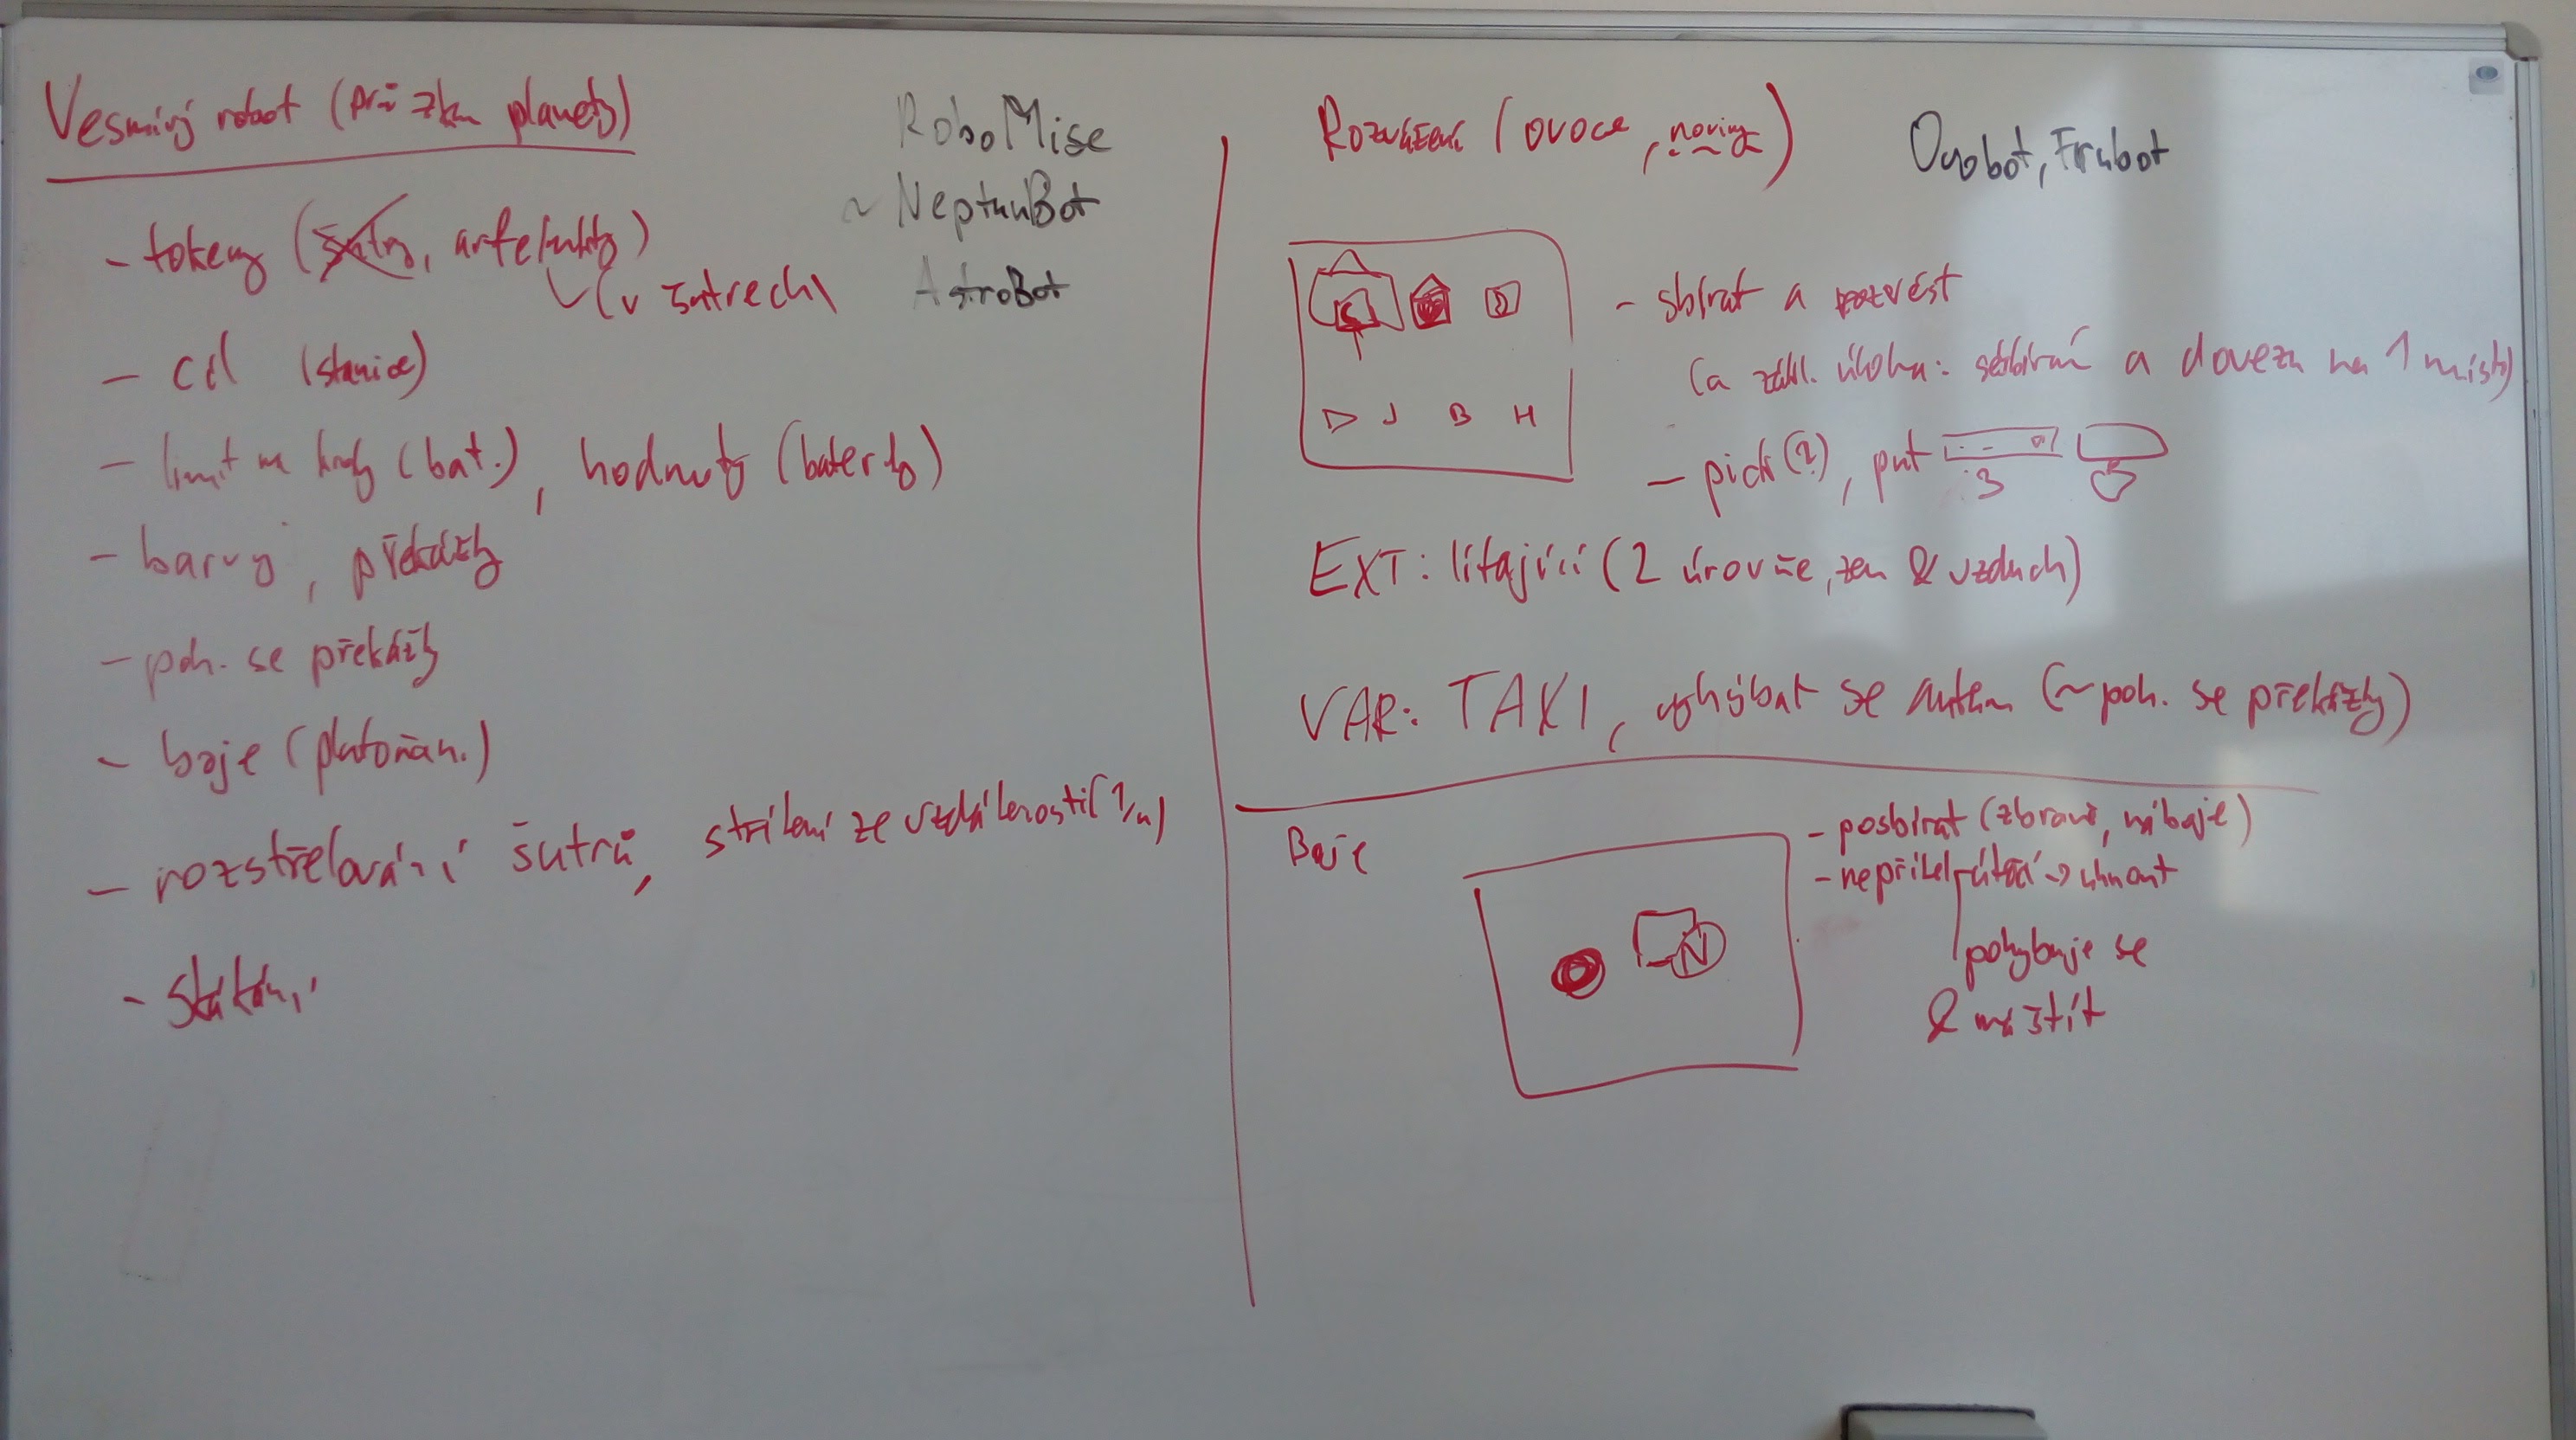 Vesmírný robot (průzkum planety)
- tokeny (šutry, artefakty)
(v šutrech)
- cíl (stanice)
- limit na kroky (bat.), hodnoty (baterky)
- barvy, překážky
- poh. se překážky
- boje (plutoňan.)
- rozstřelování šutrů, střílení ze vzdálenosti (1/n)
- skákání
RoboMise
~ NeptunBot
AstroBot
Rozvážení (ovoce, noviny)
Ovobot, Frubot
D
D J B H
- sbírat a rozvést
(a zákl. úloha: sesbírání a dovezu na 1 místo)
- pick(?), put
3
EXT: lítající (2 úrovně, zem & vzduch)
VAR: TAXI, vyhýbat se autem (~poh. se překážky)
Boje
N
- posbírat (zbraně, náboje)
- nepřítel útočí → uhnout
pohybuje se
& má štít